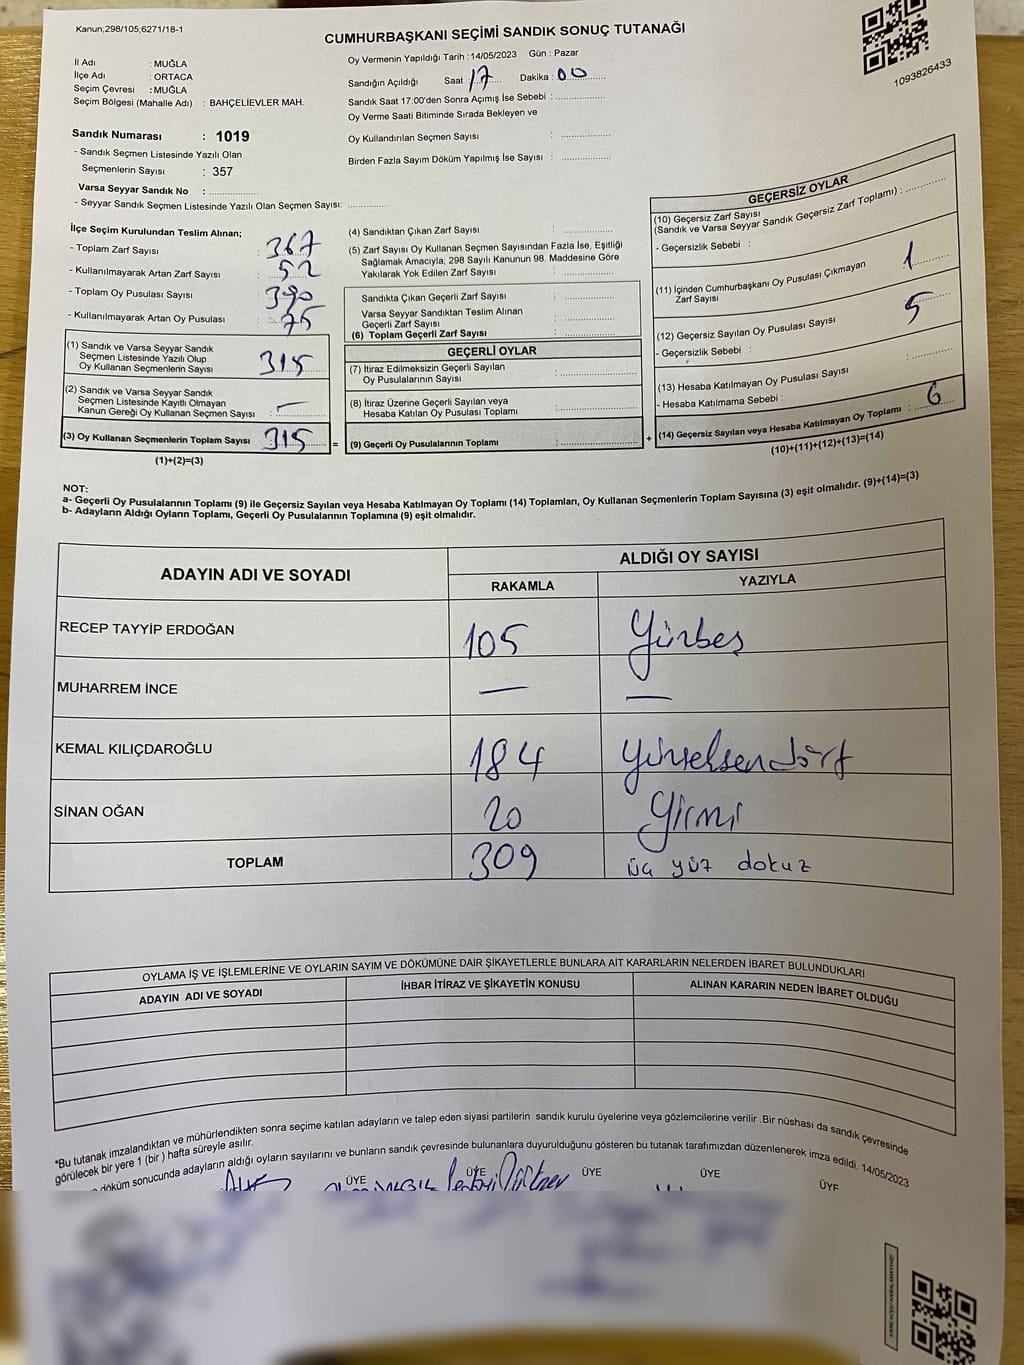 Kanun;298/105;6271/18-1
CUMHURBAŞKANI SEÇİMİ SANDIK SONUÇ TUTANAĞI
1093826433
İl Adı : MUĞLA
İlçe Adı : ORTACA
Seçim Çevresi : MUĞLA
Seçim Bölgesi (Mahalle Adı) : BAHÇELİEVLER MAH.
Sandık Numarası : 1019
- Sandık Seçmen Listesinde Yazılı Olan
Seçmenlerin Sayısı : 357
Varsa Seyyar Sandık No : ..................
- Seyyar Sandık Seçmen Listesinde Yazılı Olan Seçmen Sayısı: ..............
Oy Vermenin Yapıldığı Tarih :14/05/2023 Gün : Pazar
Sandığın Açıldığı Saat 17 Dakika : 00
Sandık Saat 17:00'den Sonra Açımış İse Sebebi : ..................
Oy Verme Saati Bitiminde Sırada Bekleyen ve
Oy Kullandırılan Seçmen Sayısı : ..................
Birden Fazla Sayım Döküm Yapılmış İse Sayısı : ..................
İlçe Seçim Kurulundan Teslim Alınan;
- Toplam Zarf Sayısı : 367
- Kullanılmayarak Artan Zarf Sayısı : 52
- Toplam Oy Pusulası Sayısı : 390
- Kullanılmayarak Artan Oy Pusulası : 75
(1) Sandık ve Varsa Seyyar Sandık
Seçmen Listesinde Yazılı Olup
Oy Kullanan Seçmenlerin Sayısı : 315
(2) Sandık ve Varsa Seyyar Sandık
Seçmen Listesinde Kayıtlı Olmayan
Kanun Gereği Oy Kullanan Seçmen Sayısı : —
(3) Oy Kullanan Seçmenlerin Toplam Sayısı : 315 =
(1)+(2)=(3)
(4) Sandıktan Çıkan Zarf Sayısı : ..................
(5) Zarf Sayısı Oy Kullanan Seçmen Sayısından Fazla İse, Eşitliği
Sağlamak Amacıyla; 298 Sayılı Kanunun 98. Maddesine Göre
Yakılarak Yok Edilen Zarf Sayısı : ..................
Sandıkta Çıkan Geçerli Zarf Sayısı : ..................
Varsa Seyyar Sandıktan Teslim Alınan
Geçerli Zarf Sayısı : ..................
(6) Toplam Geçerli Zarf Sayısı : ..................
GEÇERLİ OYLAR
(7) İtiraz Edilmeksizin Geçerli Sayılan
Oy Pusulalarının Sayısı : ..................
(8) İtiraz Üzerine Geçerli Sayılan veya
Hesaba Katılan Oy Pusulası Toplamı : ..................
(9) Geçerli Oy Pusulalarının Toplamı : .................. +
GEÇERSİZ OYLAR
(10) Geçersiz Zarf Sayısı
(Sandık ve Varsa Seyyar Sandık Geçersiz Zarf Toplamı) : ..............
- Geçersizlik Sebebi :
(11) İçinden Cumhurbaşkanı Oy Pusulası Çıkmayan
Zarf Sayısı : 1
(12) Geçersiz Sayılan Oy Pusulası Sayısı : 5
- Geçersizlik Sebebi :
(13) Hesaba Katılmayan Oy Pusulası Sayısı : ..............
- Hesaba Katılmama Sebebi :
(14) Geçersiz Sayılan veya Hesaba Katılmayan Oy Toplamı : 6
(10)+(11)+(12)+(13)=(14)
NOT:
a- Geçerli Oy Pusulalarının Toplamı (9) ile Geçersiz Sayılan veya Hesaba Katılmayan Oy Toplamı (14) Toplamları, Oy Kullanan Seçmenlerin Toplam Sayısına (3) eşit olmalıdır. (9)+(14)=(3)
b- Adayların Aldığı Oyların Toplamı, Geçerli Oy Pusulalarının Toplamına (9) eşit olmalıdır.
ADAYIN ADI VE SOYADI ALDIĞI OY SAYISI
RAKAMLA YAZIYLA
RECEP TAYYİP ERDOĞAN 105 Yüzbeş
MUHARREM İNCE — —
KEMAL KILIÇDAROĞLU 184 Yüzseksendört
SİNAN OĞAN 20 Yirmi
TOPLAM 309 üç yüz dokuz
OYLAMA İŞ VE İŞLEMLERİNE VE OYLARIN SAYIM VE DÖKÜMÜNE DAİR ŞİKAYETLERLE BUNLARA AİT KARARLARIN NELERDEN İBARET BULUNDUKLARI
ADAYIN ADI VE SOYADI İHBAR İTİRAZ VE ŞİKAYETİN KONUSU ALINAN KARARIN NEDEN İBARET OLDUĞU
*Bu tutanak imzalandıktan ve mühürlendikten sonra seçime katılan adayların ve talep eden siyasi partilerin sandık kurulu üyelerine veya gözlemcilerine verilir .Bir nüshası da sandık çevresinde
görülecek bir yere 1 (bir ) hafta süreyle asılır.
döküm sonucunda adayların aldığı oyların sayılarını ve bunların sandık çevresinde bulunanlara duyurulduğunu gösteren bu tutanak tarafımızdan düzenlenerek imza edildi. 14/05/2023
ÜYE ÜYE ÜYE ÜYE ÜYE